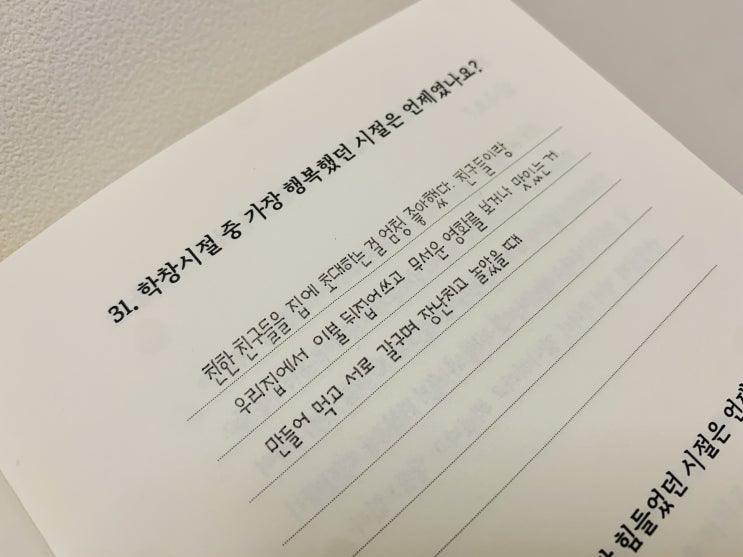 31. 학창시절 중 가장 행복했던 시절은 언제였나요?
친한 친구들을 집에 초대하는 걸 엄청 좋아했다. 친구들이랑
우리집에서 이불 뒤집어쓰고 무서운 영화를 보거나 맛있는 거
만들어 먹고 서로 갈구며 장난치고 놀았을 때
힘들었던 시절은 언제